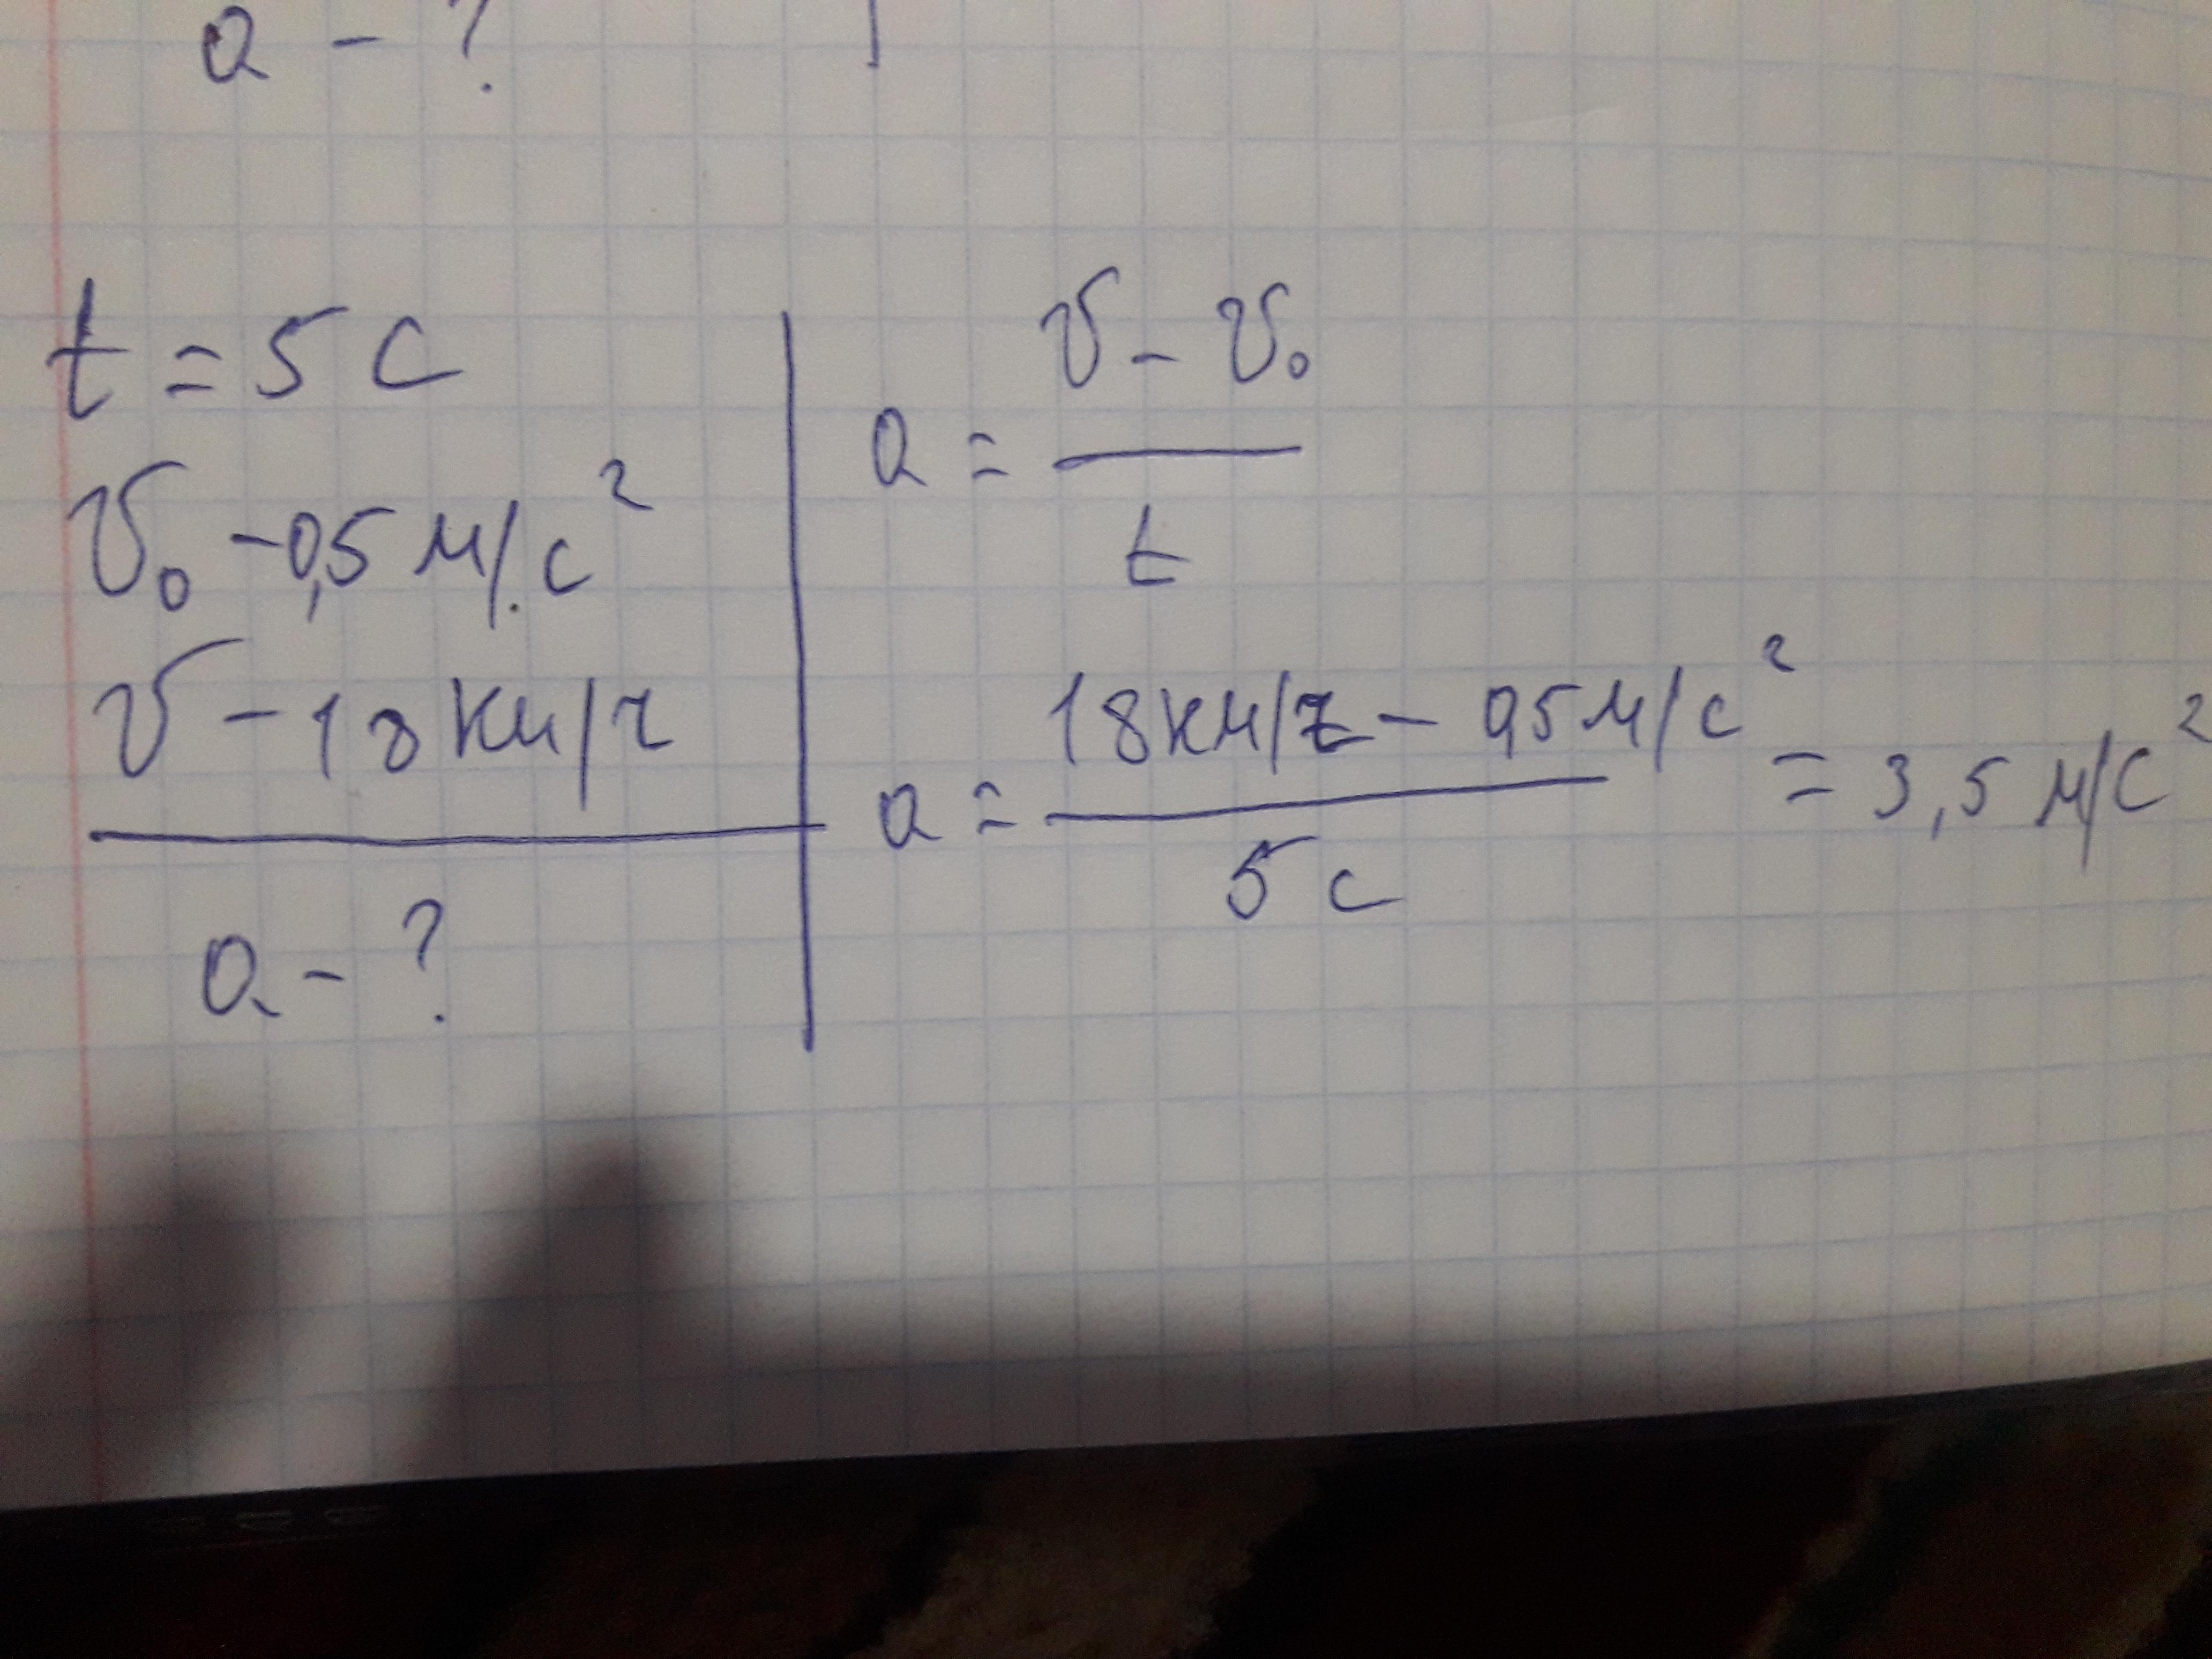 a - ?
t = 5 с
v₀ - 0,5 м/с²
v - 18 км/ч
a - ?
a = (v - v₀) / t
a = (18 км/ч - 0,5 м/с²) / 5 с = 3,5 м/с²